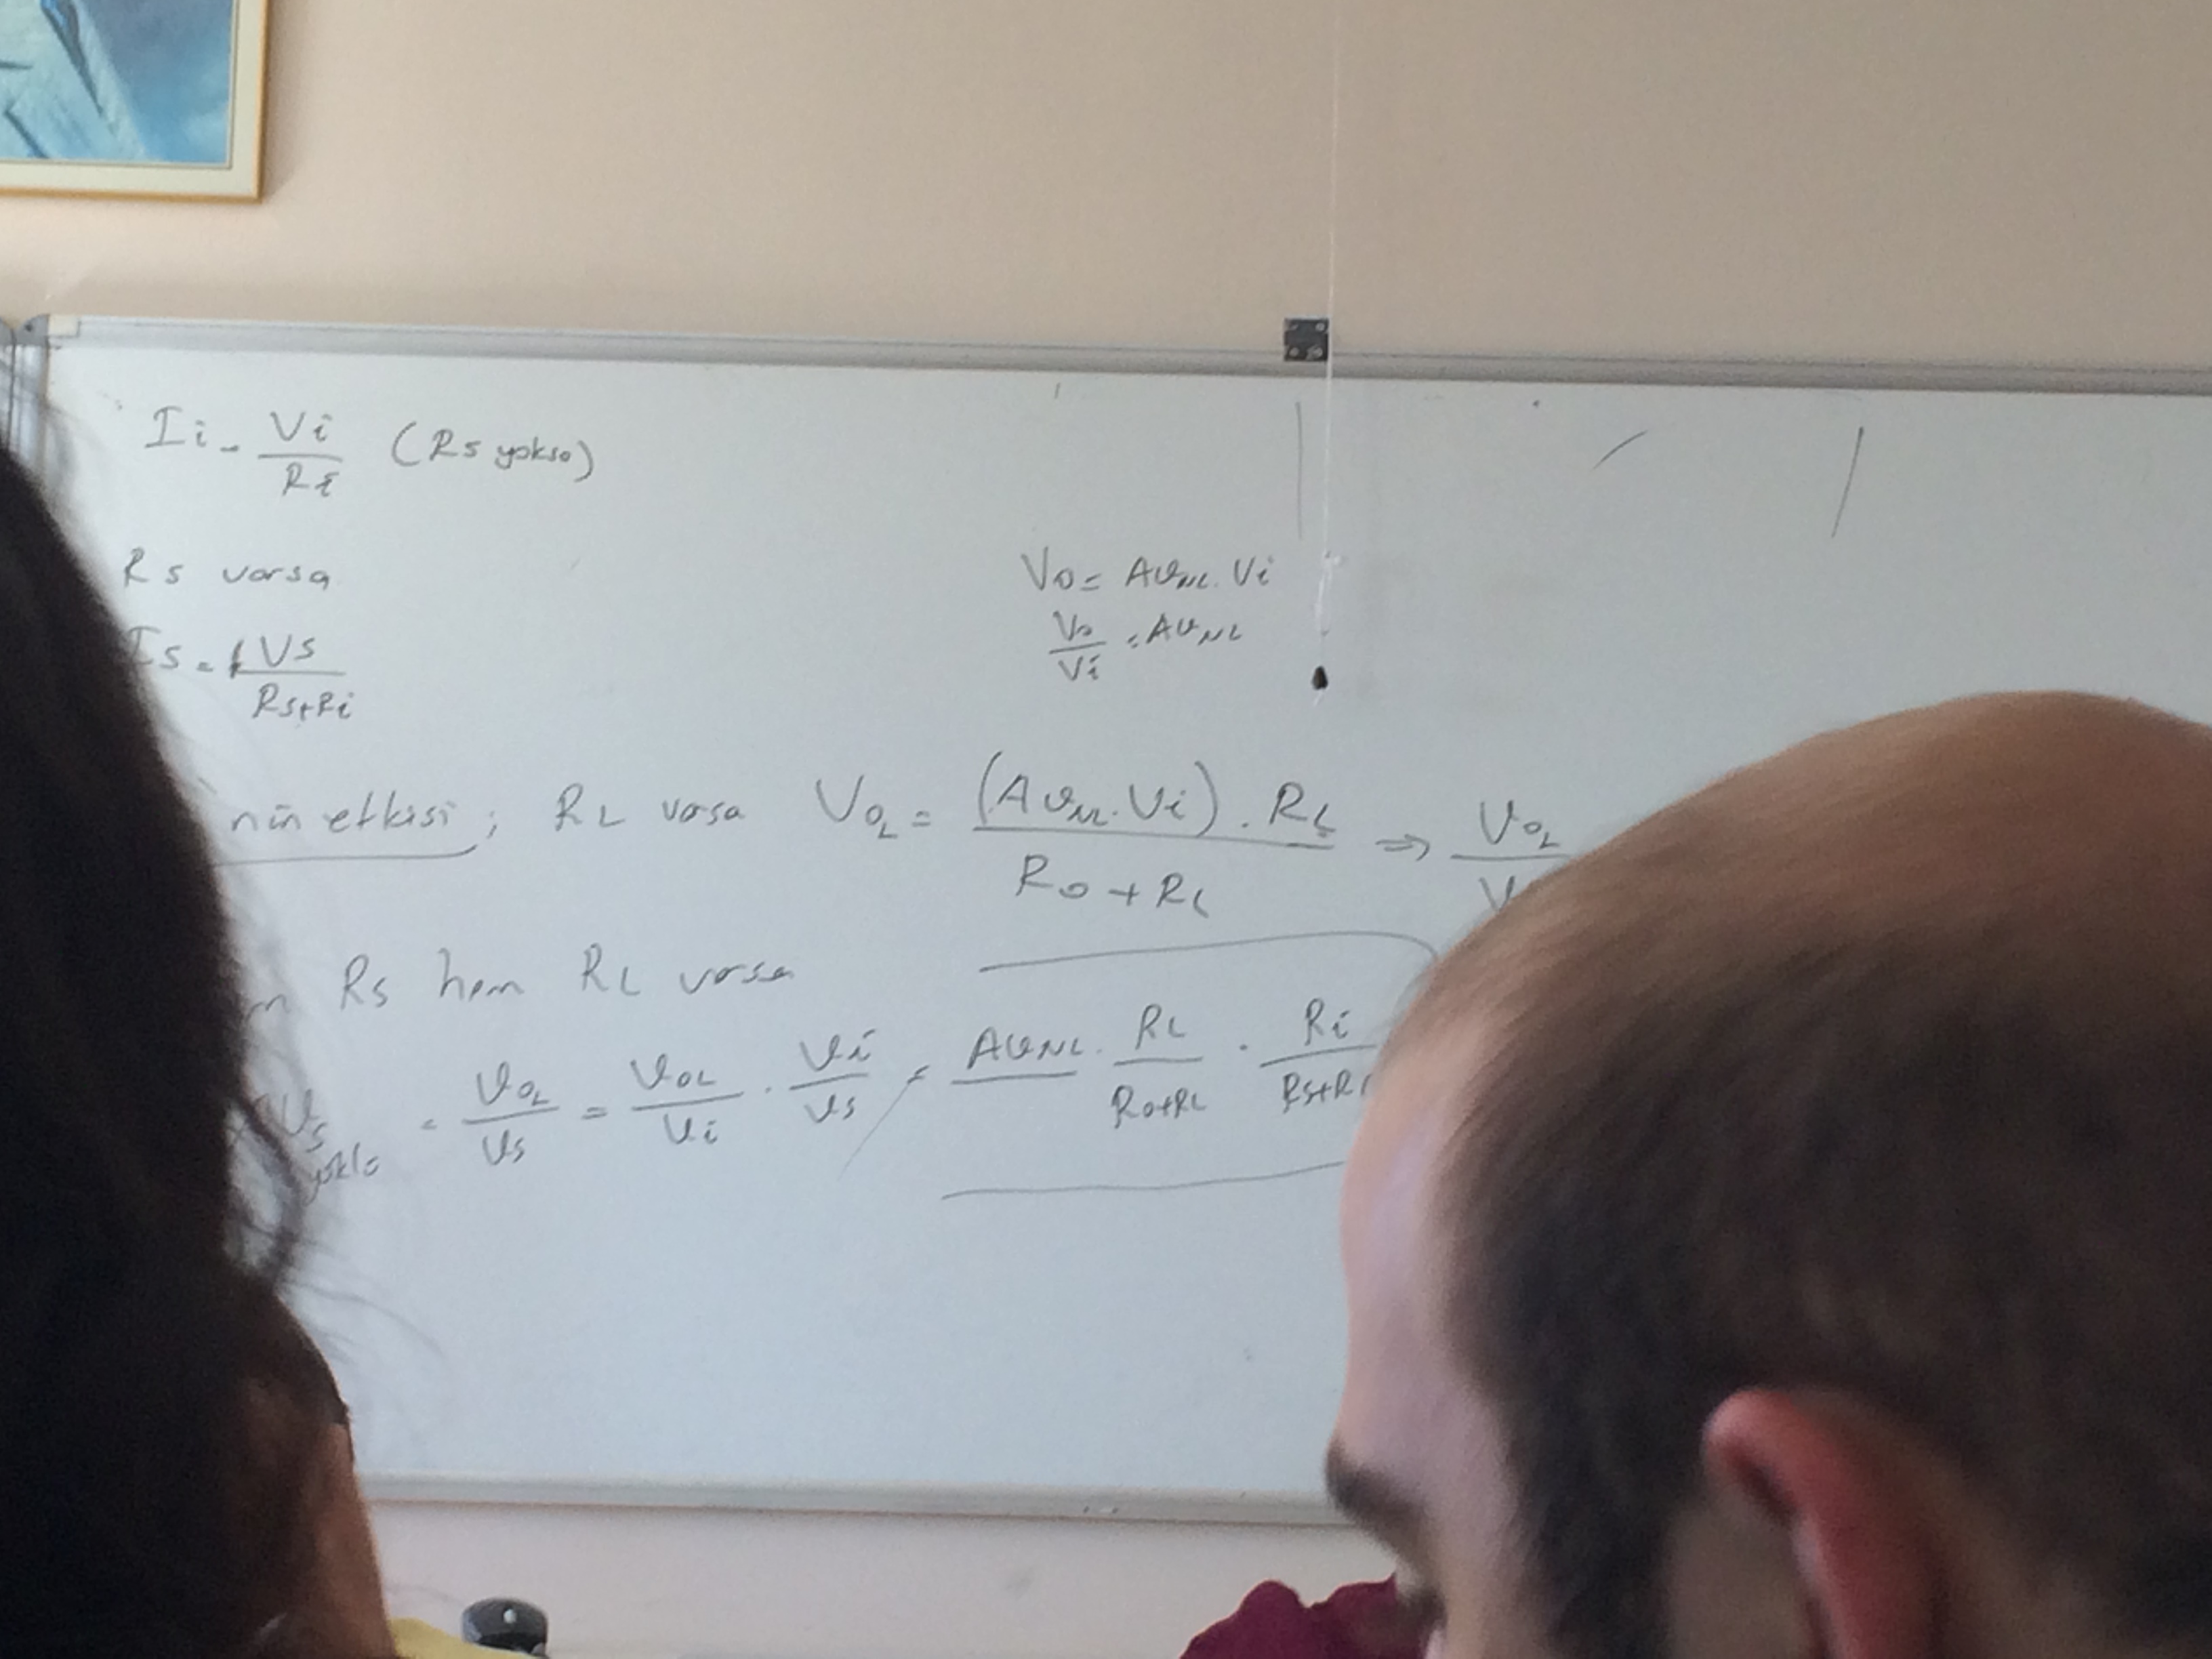 Ii = Vi / Ri (Rs yoksa)
Rs varsa
Is = Vs / Rs+Ri
Vo = AvNL . Vi
Vo / Vi = AvNL
nin etkisi ; RL varsa VoL = (AvNL . Vi) . RL / Ro + RL => VoL /
Rs hem RL varsa
= VoL / Vs = VoL / Vi . Vi / Vs = AvNL . RL / Ro+RL . Ri / Rs+Ri